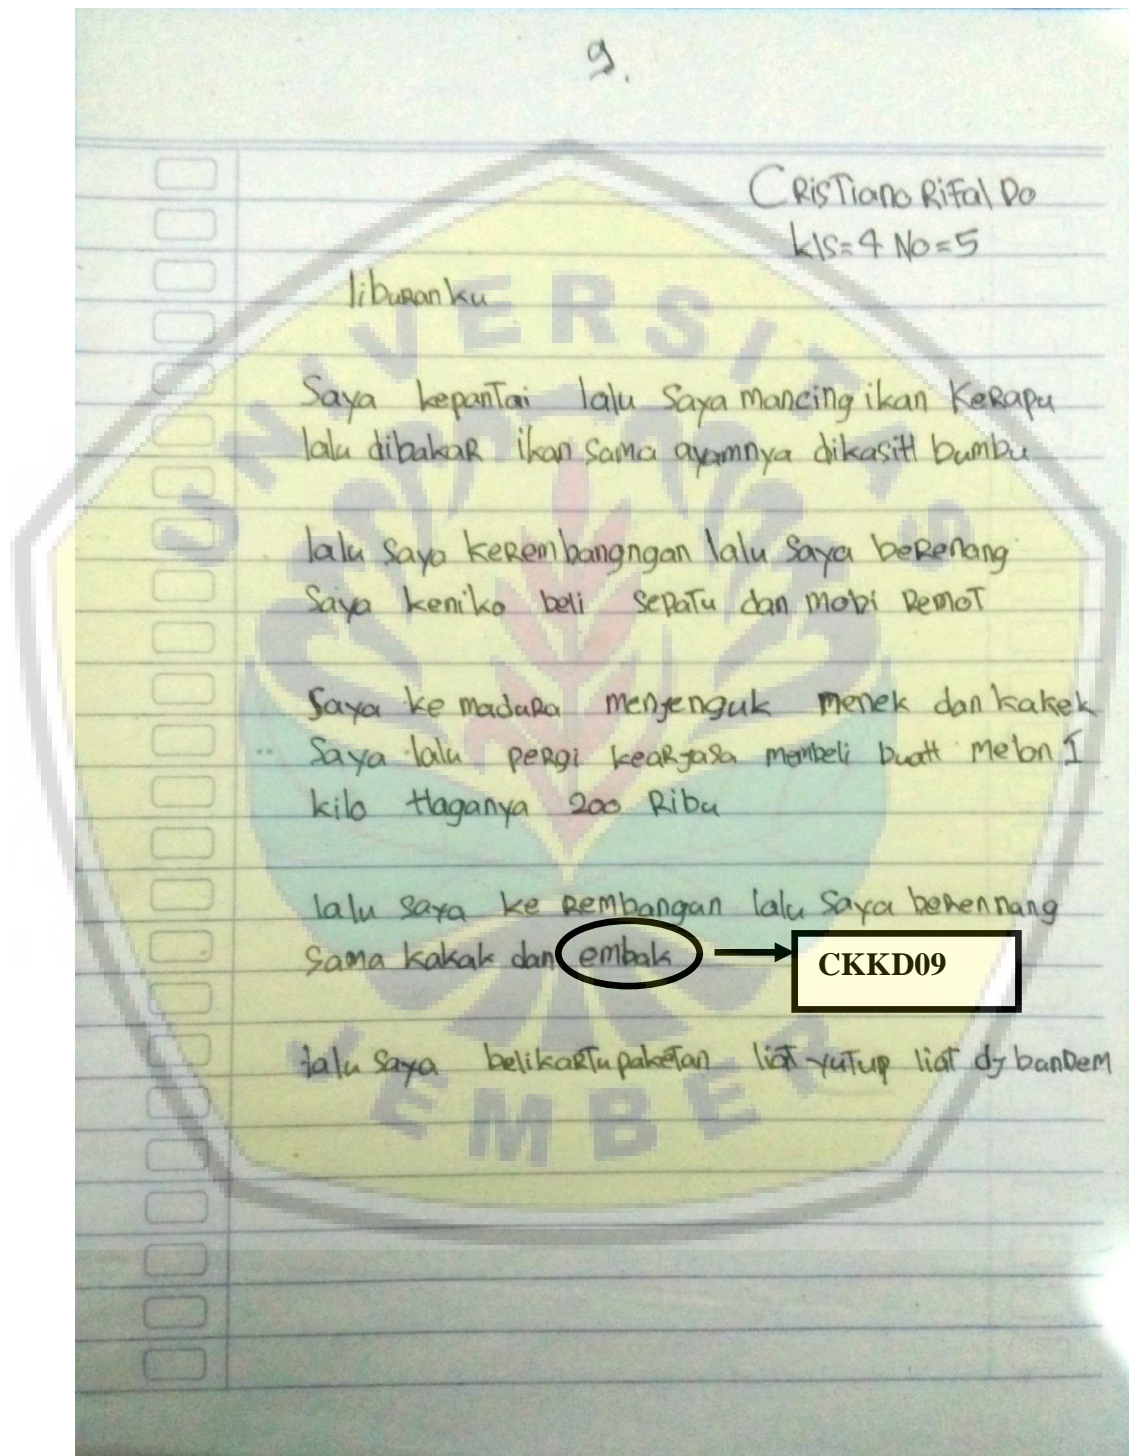 9.
CRisTiano RiFal Do
kls=4 No=5
liburanku
Saya kepanTai lalu Saya mancing ikan KeRapu
lalu dibakaR ikan Sama ayamnya dikasiH bumbu
lalu Saya keRembangngan lalu Saya beRenang
Saya keniko beli sepaTu dan mobi RemoT
Saya ke maduRa menjenguk menek dan kakek
Saya lalu peRgi keaRjasa membeli buaH melon 1
kilo Haganya 200 Ribu
lalu saya ke Rembangan lalu Saya beRennang
Sama kakak dan embak
CKKD09
lalu Saya belikaRTupakeTan liaT yuTup liaT dj banDem
UNIVERSITAS
JEMBER